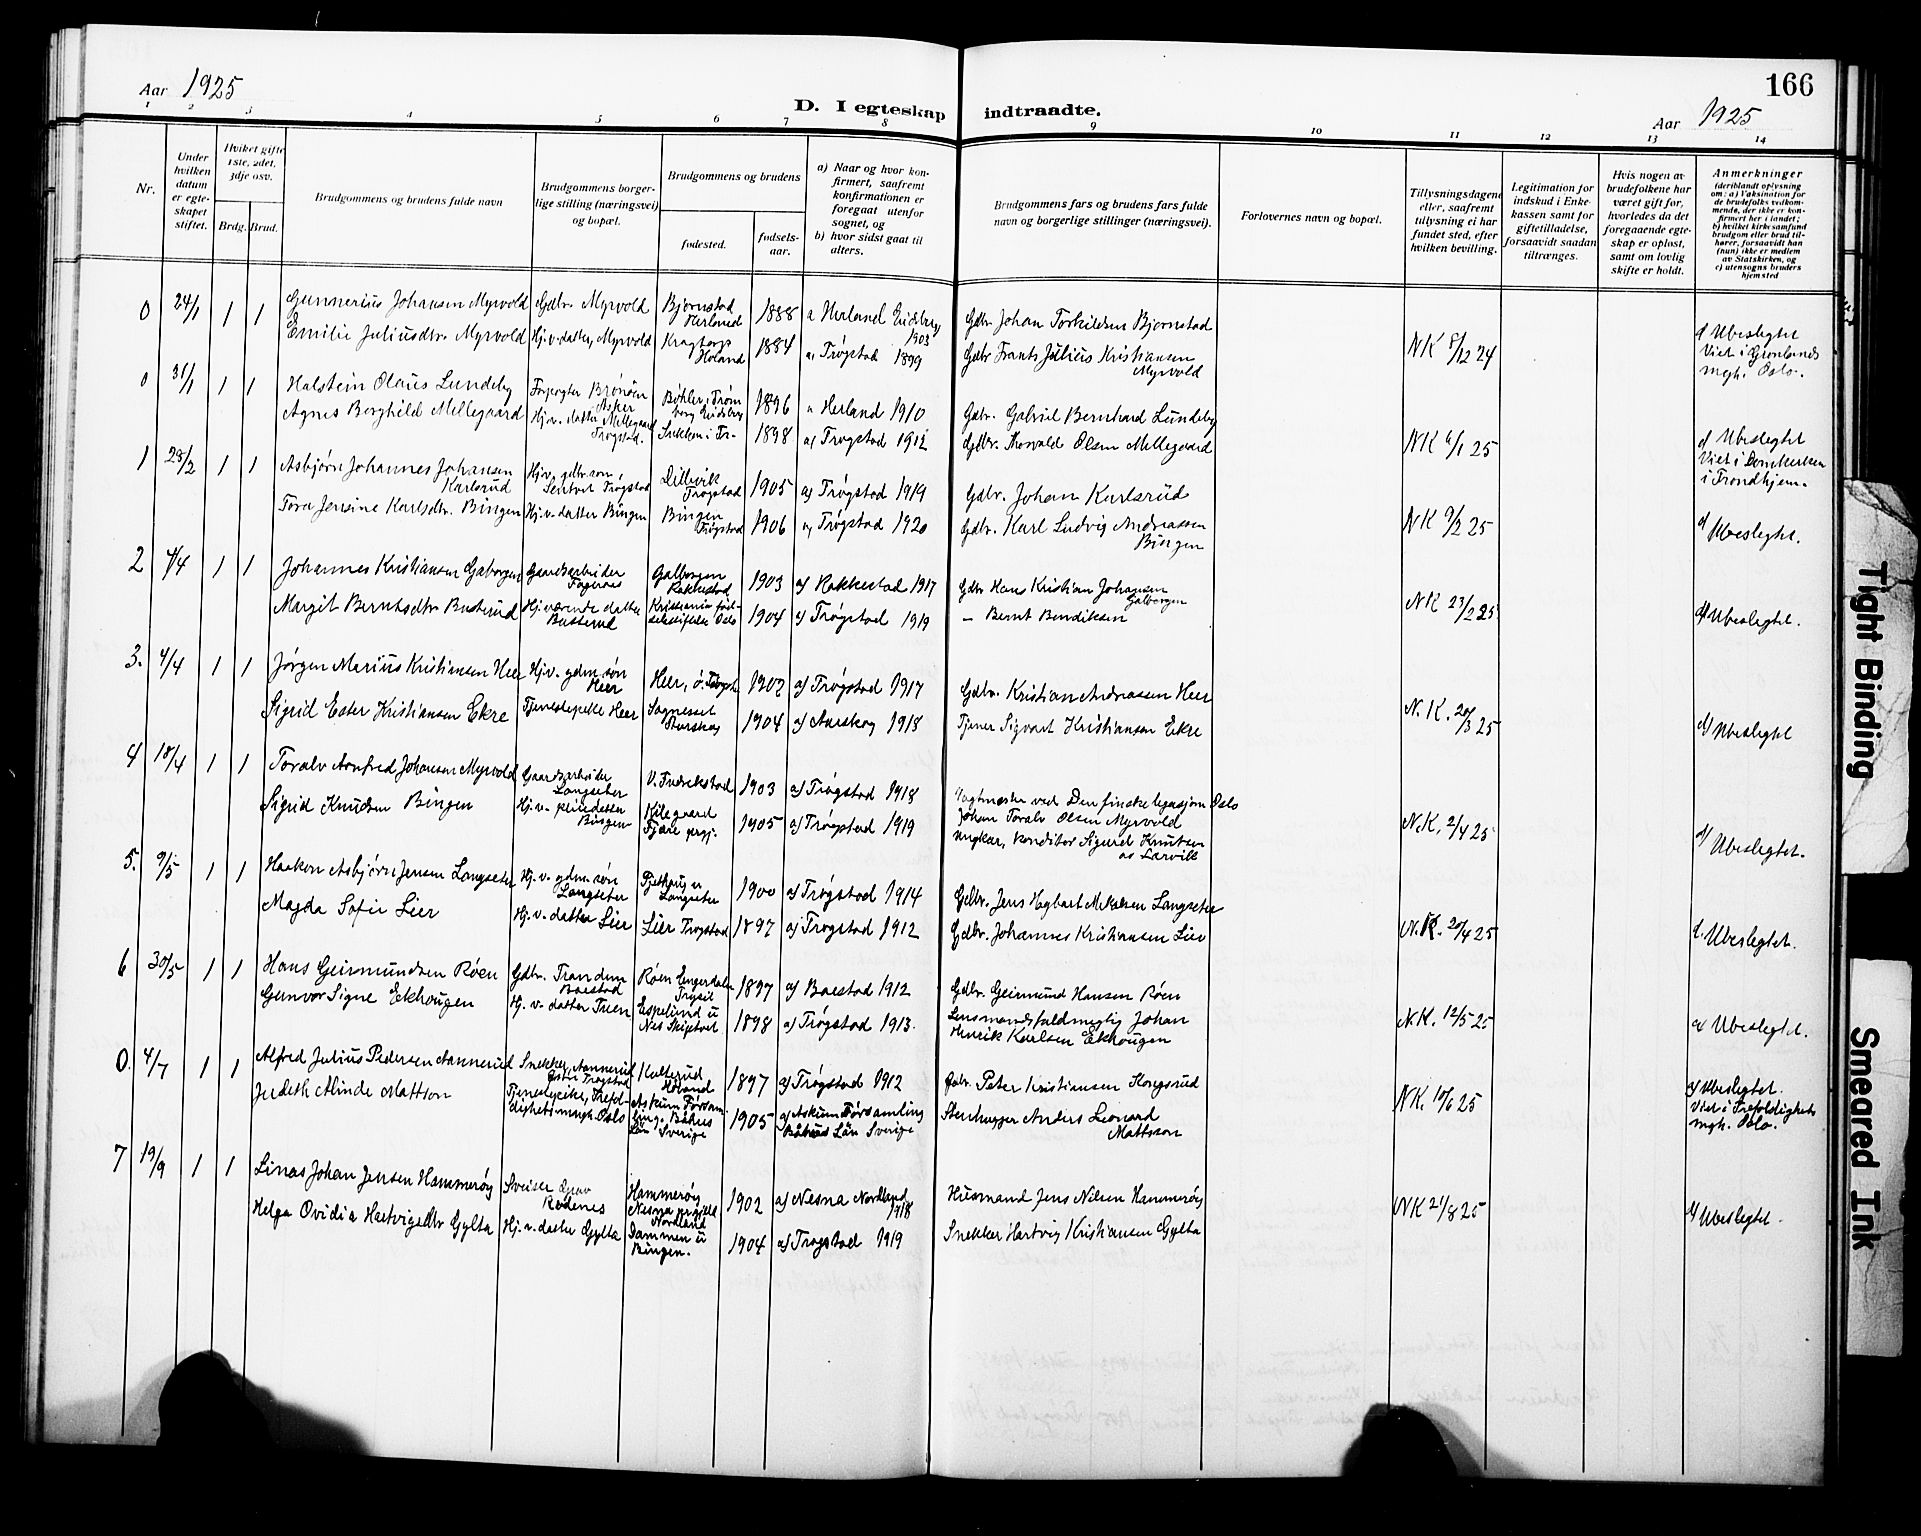 Aar 1925
D. I egteskap indtraadte.
166
Aar 1925
1 2 3 4 5 6 7 8 9 10 11 12 13 14
Nr.
Under hvilken datum er egteskapet stiftet.
Hvilket gifte 1ste, 2det, 3dje osv.
Brdg. Brud.
Brudgommens og brudens fulde navn
Brudgommens borgerlige stilling (næringsvei) og bopæl.
Brudgommens og brudens
fødested.
fødselsaar.
a) Naar og hvor konfirmert, saafremt konfirmationen er foregaat utenfor sognet, og
b) hvor sidst gaat til alters.
Brudgommens fars og brudens fars fulde navn og borgerlige stillinger (næringsvei).
Forlovernes navn og bopæl.
Tillysningsdagene eller, saafremt tillysning ei har fundet sted, efter hvilken bevilling.
Legitimation for indskud i Enkekassen samt for giftetilladelse, forsaavidt saadan tiltrænges.
Hvis nogen av brudefolkene har været gift før, hvorledes da det foregaaende egteskap er opløst, samt om lovlig skifte er holdt.
Anmerkninger
(deriblandt oplysning om: a) Vaksination for de brudefolks vedkommende, der ikke er konfirmert her i landet; b) hvilket kirkesamfund brudgom eller brud tilhører, forsaavidt han (hun) ikke er medlem av Statskirken, og c) utensogns bruders hjemsted
0 24/1 1 1 Gunnerius Johansen Myrvold Gdbr. Myrvold Bjørnstad Herland 1888 a Herland Eidsberg 1903 Gdbr Johan Torkildsen Bjørnstad
Emilie Juliusdtr. Myrvold Hj.v. datter, Myrvold Kragtorp Høland 1884 a) Trøgstad 1899 Gdbr Frants Julius Kristiansen Myrvold NK 8/12 24 d) Ubeslegtet Viet i Grønlands mgh. Oslo.
0 31/1 1 1 Halstein Olaus Lundeby Forpagter Brønøen Asker Bøhler, Trømborg Eidsberg 1896 a Herland 1910 Gdbr. Gabriel Bernhard Lundeby
Agnes Borghild Mellegaard Hj.v. datter Mellegaard Trøgstad. i Tr. 1898 a) Trøgstad 1912 Gdbr. Olsen Mellegaard NK 6/1 25 d) Ubeslegtet Viet i Domkirken i Trondhjem.
1 28/2 1 1 Asbjørn Johannes Johansen Karlsrud Hj.v. gdbr. søn, Trøgstad Dillevik Trøgstad 1905 a) Trøgstad 1919 Gdbr. Johan Karlsrud
Tora Jensine Karlsdtr. Bingen Hj.v. datter Bingen Bingen Trøgstad 1906 a) Trøgstad 1920 Gdbr. Karl Ludvig Andreassen Bingen NK 9/2 25 d) Ubeslegtet.
2 4/4 1 1 Johannes Kristiansen Gaborgen Gaardsarbeider Fagernes Galborgen Rakkestad 1903 a) Rakkestad 1917 Gdbr Hans Kristian Johansen Galborgen
Margit Berntsdtr Busterud Hj.værende datter Busterud Kristiania fødselsstiftelse Oslo 1904 a) Trøgstad 1919 – Bernt Bendiksen NK 23/2 25 d) Ubeslegtet.
3. 4/4 1 1 Jørgen Marius Kristiansen Heer Hj.v. gdm. søn Heer Heer, ø. Trøgst. 1902 a) Trøgstad 1917 Gdbr. Kristian Andreasen Heer
Sigrid Ester Kristiansen Ekre Tjenestepike Heer Aurskog 1904 a) Aurskog 1918 Tjener Sigvart Kristiansen Ekre N.K. 20/3 25 d) Ubeslegtet
4 18/4 1 1 Toralv Arnfred Johansen Myrvold Gaardsarbeider Langseter V. Fredrikstad 1903 a) Trøgstad 1918 Vagtmester ved Den finske legasjon Oslo Johan Toralv Olsen Myrvold
Sigrid Knudsen Bingen Hj.v. pleiedatter Bingen Kilegaard Fjære prgj. 1905 a) Trøgstad 1919 ungkar, konditor Sigurd Knutsen av Larvik N.K. 2/4 25 d) Ubeslegtet.
5. 9/5 1 1 Haakon Asbjørn Jensen Langseter Hj.v. gdm. søn Langseter u Langseter 1900 a) Trøgstad 1914 Gdbr. Jens Hagbart Mikalsen Langseter
Magda Sofie Lier Hj.v. datter Lier Lier Trøgstad 1897 a) Trøgstad 1912 Gdbr. Johannes Kristiansen Lier N.K. 20/4 25 d. Ubeslegtet.
6 30/5 1 1 Hans Geirmundsen Røen Gdbr. Trandem Baastad Røen Engerdalen Trysil 1897 a) Baastad 1912 Gdbr. Geirmund Hansen Røen
Gunvor Signe Eekhougen Hj.v. datter Tuen Espelund u Nes Skiptvet 1898 a) Trøgstad 1913. Lensmandsfuldmegtig Johan Henrik Karlsen Ekhougen N.K. 12/5 25 d) Ubeslegtet.
0. 4/7 1 1 Alfred Julius Pedersen Aannerud Snekker, Aannerud østre Trøgstad Kulterud Høland 1897 a) Trøgstad 1912 Gdbr. Peter Kristiansen Kongsrud
Judith Alinde Mattson Tjenestepike, Trefoldighetsmngh. Oslo Askum Församling, Båhus Län Sverige 1905 a) Askum Församling Båhus Län Sverige Stenhugger Anders Leonard Mattsson NK. 10/6 25 d) Ubeslegtet. Viet i Trefoldighets mgh. Oslo.
7 19/9 1 1 Linas Johan Jensen Hammerøy Sveiser Rødenes Hammerøy Nesna Nordland 1902 a) Nesna Nordland 1918 Husmand Jens Nilsen Hammerøy
Helga Ovidia Hartvigsdtr Gylta Hj.v. datter Gylta Dammen u Bingen. 1904 a) Trøgstad 1919 Snekker Hartvig Kristiansen Gylta NK 21/8 25 d) Ubeslegtet.
Tight Binding
Smeared Ink